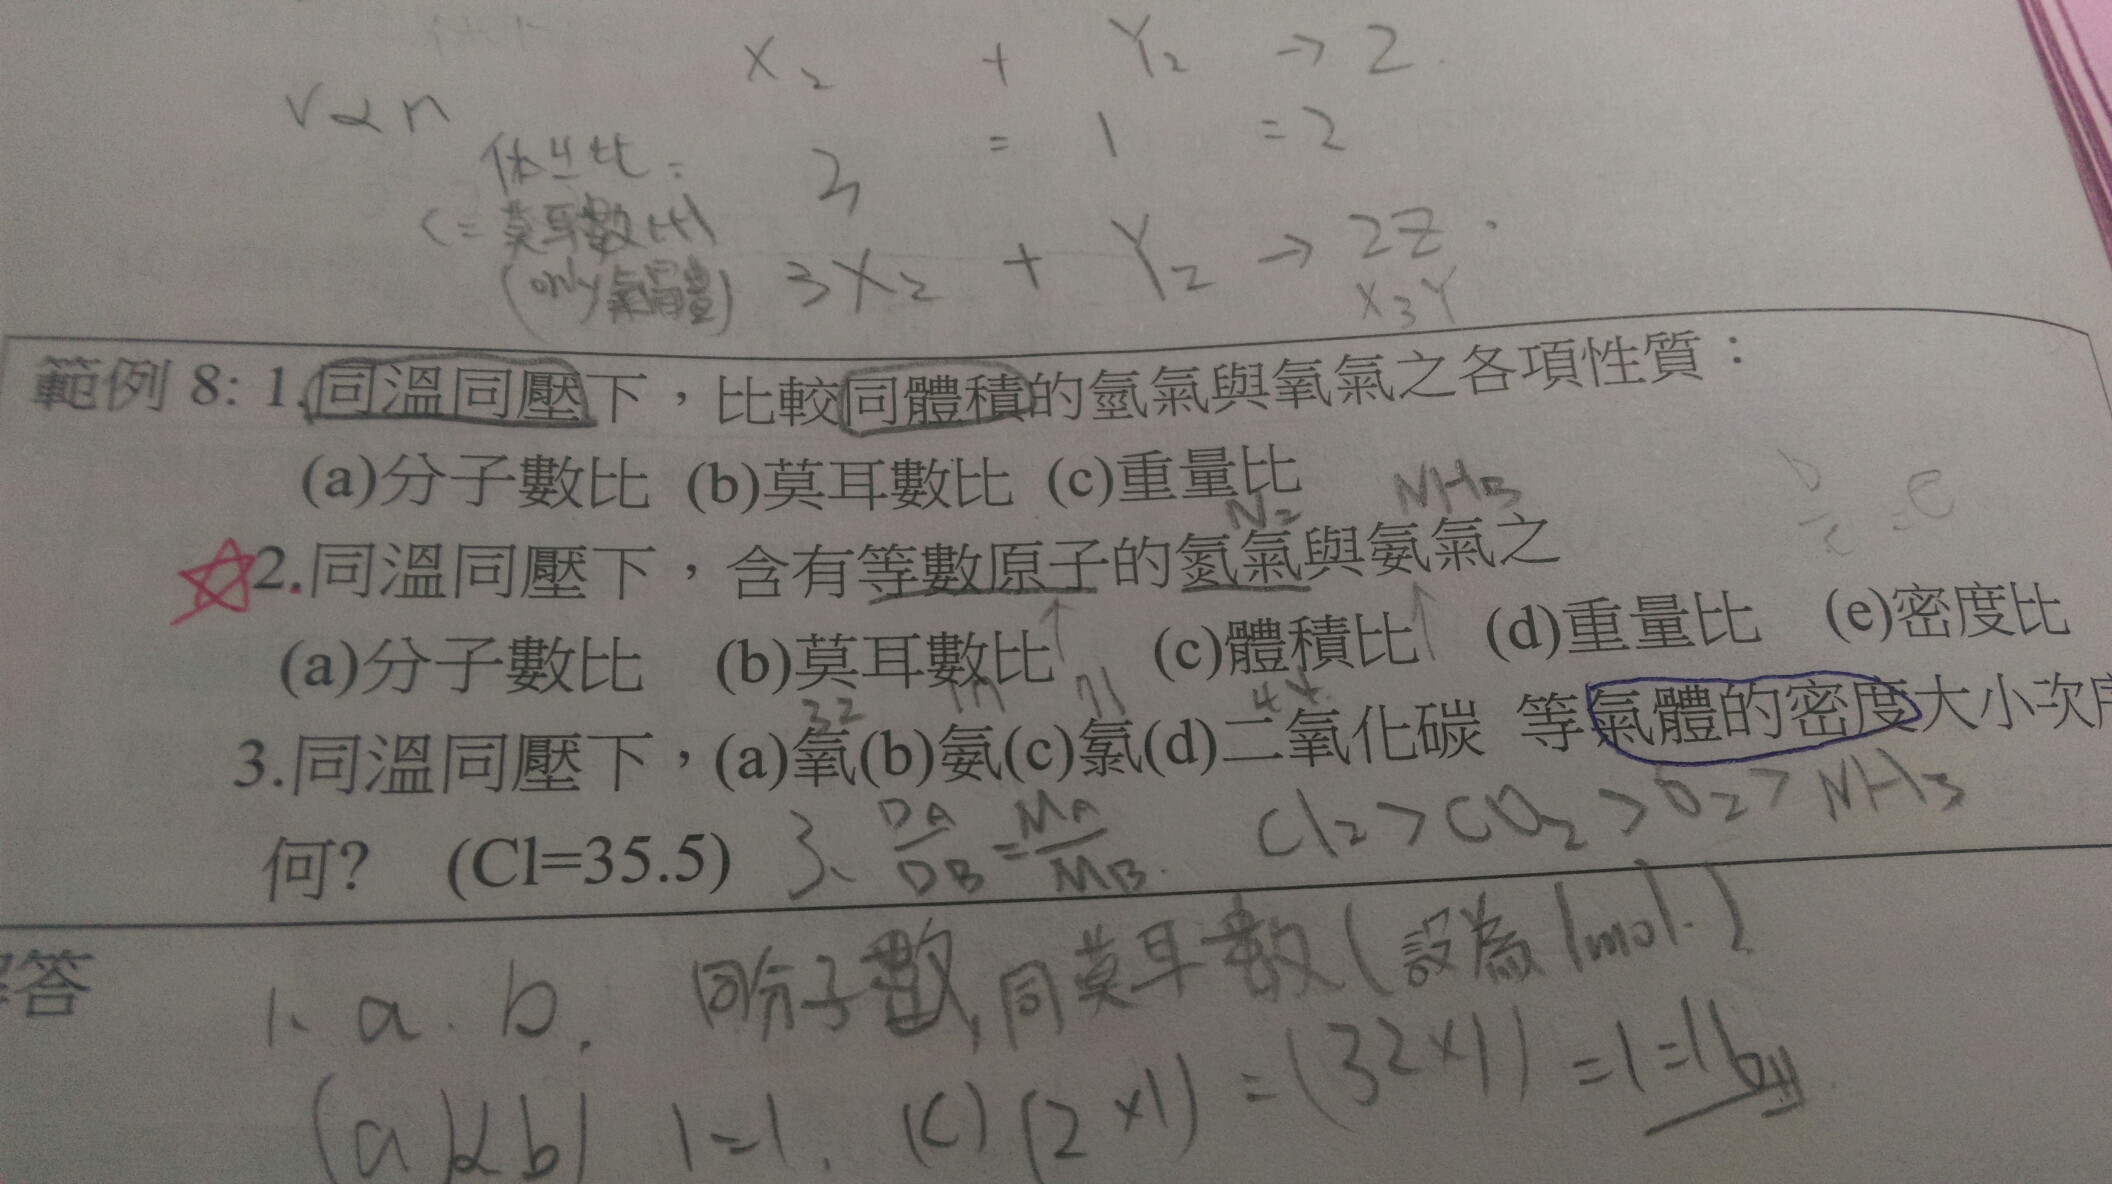 X₂ + Y₂ → Z
V∝n
体母比: 3 : 1 : 2
(=莫耳數比)
(only氣體) 3X₂ + Y₂ → 2Z
X₃Y
範例 8: 1.同溫同壓下，比較同體積的氫氣與氧氣之各項性質：
(a)分子數比 (b)莫耳數比 (c)重量比
N₂ NH₃
2.同溫同壓下，含有等數原子的氮氣與氨氣之
(a)分子數比 (b)莫耳數比 (c)體積比 (d)重量比 (e)密度比
32 17 71 44
3.同溫同壓下，(a)氧(b)氨(c)氯(d)二氧化碳 等氣體的密度大小次序
何? (Cl=35.5) 3. DA/DB = MA/MB. Cl₂ > CO₂ > O₂ > NH₃
解答
1. a. b. 同分子數, 同莫耳數(設為1mol.)
(a)&(b) 1=1. (c) (2×1) = (32×1) = 1=16